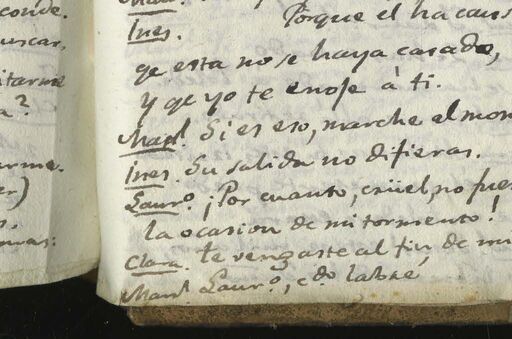 conde.
uscar,
itarme
a?
arme.
er)
Ines. Porque el ha caus
qe esta no se haya casado,
y qe yo te enoje à ti.
Manl. Si es eso, marche el mom
Ines. Su salida no difieras.
Lauro. ¡Por cuanto, crüel, no fues
la ocasion de mi tormento!
Clara. te vengaste al fin de mi
Manl. Lauro,